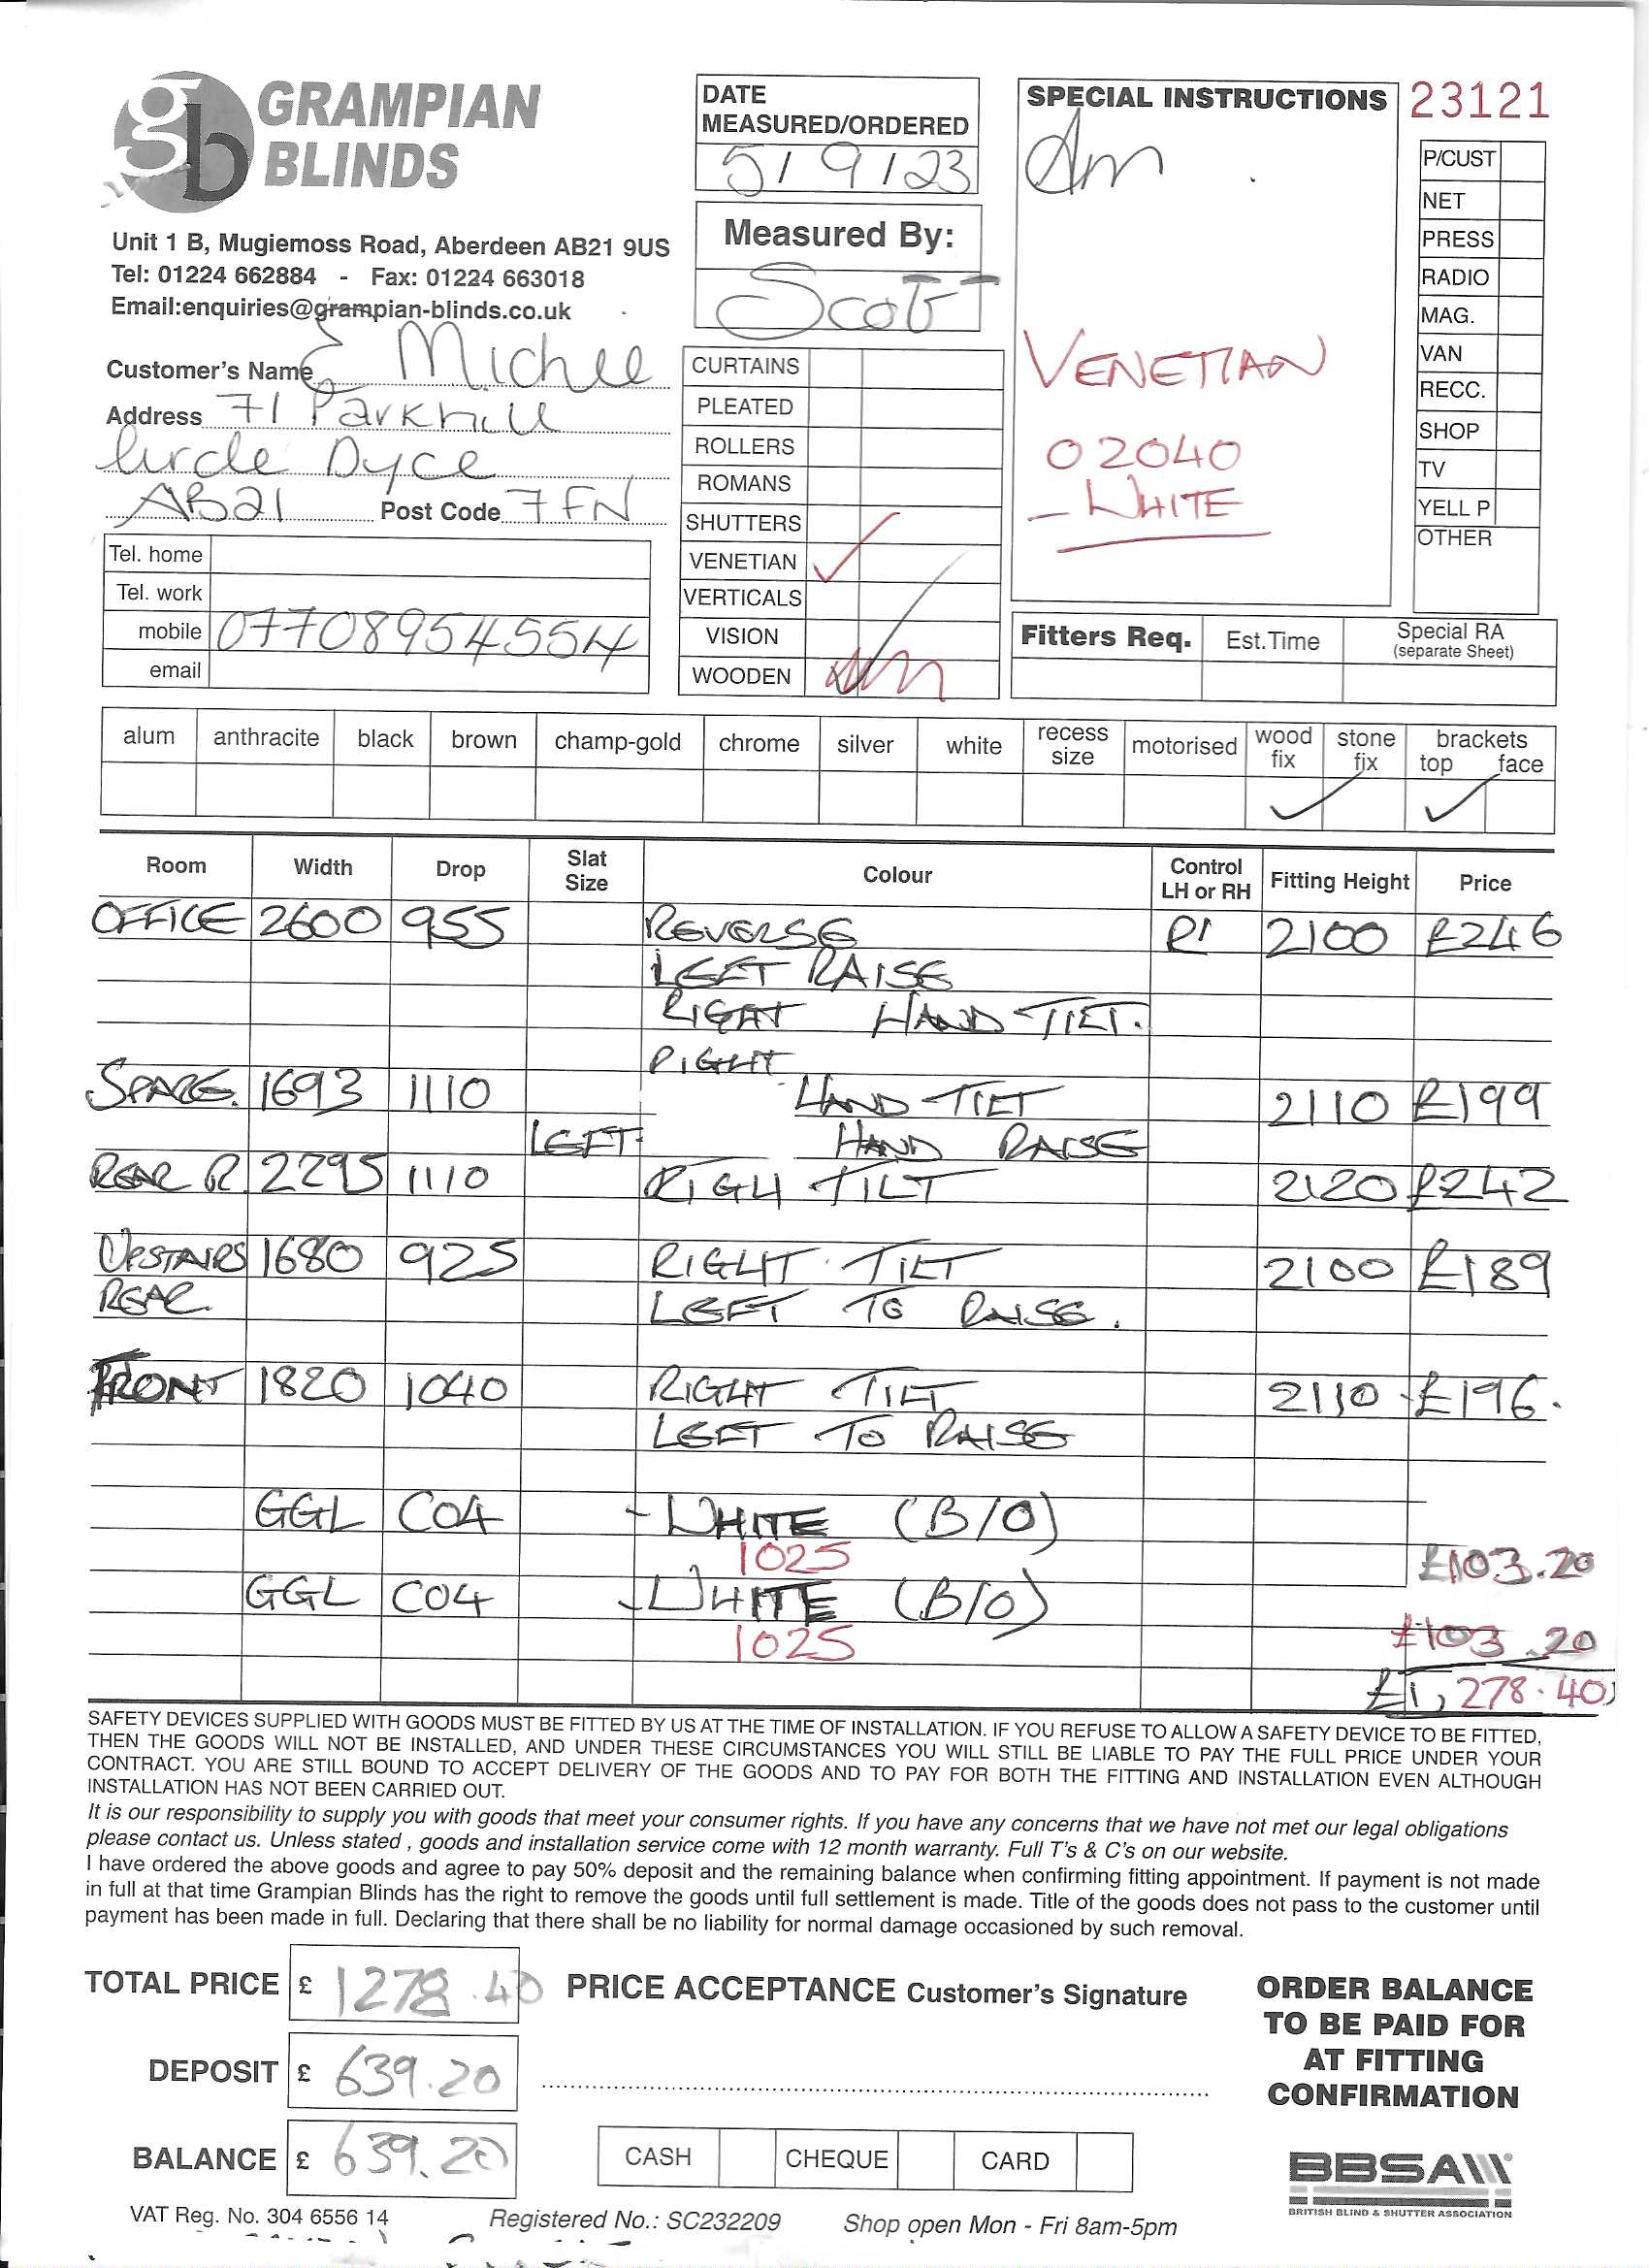 gb GRAMPIAN BLINDS
Unit 1 B, Mugiemoss Road, Aberdeen AB21 9US
Tel: 01224 662884 - Fax: 01224 663018
Email:enquiries@grampian-blinds.co.uk
DATE MEASURED/ORDERED
5/9/23
Measured By:
Scott
SPECIAL INSTRUCTIONS
Am
VENETIAN
02040
- WHITE
23121
P/CUST
NET
PRESS
RADIO
MAG.
VAN
RECC.
SHOP
TV
YELL P
OTHER
Customer's Name E Michie
Address 71 Parkhill
Circle Dyce
AB21 Post Code 7FN
Tel. home
Tel. work
mobile 07708954554
email
CURTAINS
PLEATED
ROLLERS
ROMANS
SHUTTERS
VENETIAN ✓
VERTICALS
VISION
WOODEN
Fitters Req. Est.Time Special RA (separate Sheet)
alum anthracite black brown champ-gold chrome silver white recess size motorised wood fix stone fix brackets top face
✓ ✓
Room Width Drop Slat Size Colour Control LH or RH Fitting Height Price
OFFICE 2600 955 REVERSE 2100 £246
LEFT RAISE
RIGHT HAND TILT.
RIGHT
SPARE. 1693 1110 HAND TILT 2110 £199
LEFT HAND RAISE
REAR R. 2295 1110 RIGH TILT 2120 £242
UPSTAIRS 1680 925 RIGHT TILT 2100 £189
REAR. LEFT TO RAISE.
FRONT 1820 1040 RIGHT TILT 2110 £196.
LEFT TO RAISE
GGL C04 - WHITE (B/O)
1025 £103.20
GGL C04 - WHITE (B/O)
1025 £103.20
£1,278.40
SAFETY DEVICES SUPPLIED WITH GOODS MUST BE FITTED BY US AT THE TIME OF INSTALLATION. IF YOU REFUSE TO ALLOW A SAFETY DEVICE TO BE FITTED,
THEN THE GOODS WILL NOT BE INSTALLED, AND UNDER THESE CIRCUMSTANCES YOU WILL STILL BE LIABLE TO PAY THE FULL PRICE UNDER YOUR
CONTRACT. YOU ARE STILL BOUND TO ACCEPT DELIVERY OF THE GOODS AND TO PAY FOR BOTH THE FITTING AND INSTALLATION EVEN ALTHOUGH
INSTALLATION HAS NOT BEEN CARRIED OUT.
It is our responsibility to supply you with goods that meet your consumer rights. If you have any concerns that we have not met our legal obligations
please contact us. Unless stated , goods and installation service come with 12 month warranty. Full T's & C's on our website.
I have ordered the above goods and agree to pay 50% deposit and the remaining balance when confirming fitting appointment. If payment is not made
in full at that time Grampian Blinds has the right to remove the goods until full settlement is made. Title of the goods does not pass to the customer until
payment has been made in full. Declaring that there shall be no liability for normal damage occasioned by such removal.
TOTAL PRICE £ 1278.40
PRICE ACCEPTANCE Customer's Signature
DEPOSIT £ 639.20
BALANCE £ 639.20
CASH CHEQUE CARD
ORDER BALANCE
TO BE PAID FOR
AT FITTING
CONFIRMATION
BBSA
BRITISH BLIND & SHUTTER ASSOCIATION
VAT Reg. No. 304 6556 14 Registered No.: SC232209 Shop open Mon - Fri 8am-5pm